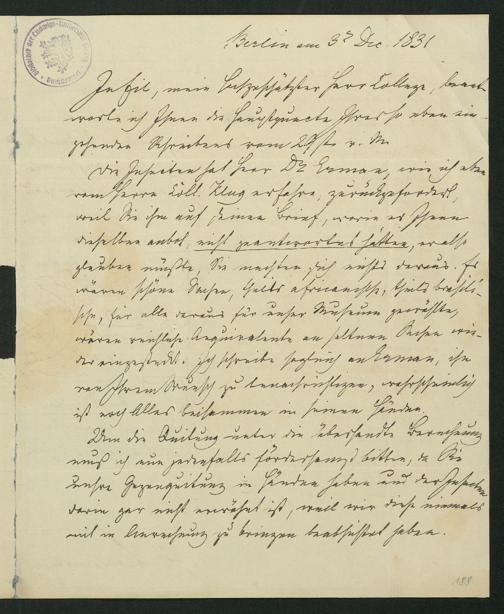 Berlin am 3ʳ Dec. 1831
In Eil, mein hochgeschätzter Herr College, beant-
worte ich Ihnen die Hauptpuncte Ihres so eben ein-
gehenden Schreibens vom 29st. v. M.
Die Insecten hat Herr Dr. Erman, wie ich eben
vom Herrn Coll. Klug erfahre, zurückgefordert,
weil Sie ihm auf seinen Brief, worin er Ihnen
dieselben anbot, nicht geantwortet hätten, er also
glauben müßte, Sie machten sich nichts daraus. Es
wären schöne Sachen, theils africanische, theils brasili-
sche, für alle daraus für unser Museum gewählte,
wären reichliche Aequivalente an seltnen Sachen wie-
der eingesteckt. Ich schreibe sogleich an Erman, ihn
von Ihrem Wunsch zu benachrichtigen, wahrscheinlich
ist noch Alles beisammen in seinen Händen.
Um die Quitung unter die übersandte Berechnung
muß ich nun jedenfalls bitten, da Sie
unsre Gegenquitung in Händen haben und der Insecten
darin gar nicht erwähnt ist, weil wir diese niemals
mit in Anrechnung zu bringen beabsichtet haben.
188